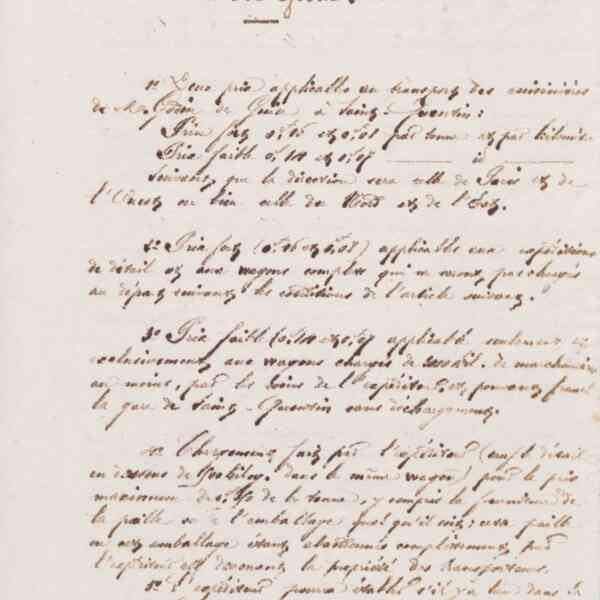 1º Deux prix applicables au transport des cuisinières
de Mr. Godin de Guise à Saint-Quentin:
Prix fort 0f.16 et 0f.08 par tonne et par kilomètre
Prix faible 0f.14 et 0f.07 id
suivant, que la direction sera celle de Paris et de
l'Ouest ou bien celle du Nord et de l'Est.
2º Prix fort (0f.16 et 0f.08) applicables aux expéditions
de détail et aux wagons complets qui ne seront pas chargés
au départ suivant les conditions de l'article suivant.
3º Prix faible (0f.14 et 0f.07) applicable seulement et
exclusivement aux wagons chargés de kil. de marchandises
au moins, par les soins de l'expéditeur et pouvant franchir
la gare de Saint-Quentin sans déchargement.
4º Chargement fait par l'expéditeur (sauf détail
en dessous de kilog. dans le même wagon) pour le prix
maximum de la tonne, y compris la fourniture de
la paille ou de l'emballage quel qu'il soit; cette paille
ou cet emballage étant abandonnés complètement par
l'expéditeur et devenant la propriété des transporteurs.
5º L'expéditeur pourra établir s'il y a lieu dans la